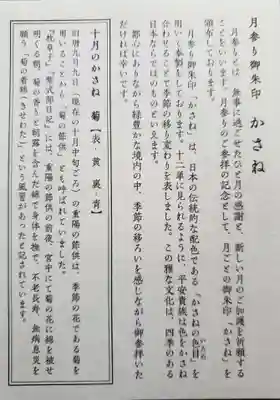 月参り御朱印 かさね
月参りとは、無事に過ごせたひと月の感謝と、新しい月のご加護を祈願する
ことをいいます。月参りのご参拝の記念として、月ごとの御朱印「かさね」を
頒布しております。
月参り御朱印「かさね」は、日本の伝統的な配色である「かさねの色目」を
いろめ
用いて奉製をしております。十二単に見られるように、平安貴族は色をかさね
合わせることで季節の移り変わりを表しました。この雅な文化は、四季のある
日本ならではのものといえます。
都心にありながら緑豊かな境内の中、季節の移ろいを感じながら御参拝いた
だければ幸いです。
十月のかさね 菊【表、黄 裏、青】
旧暦九月九日(現在の十月中旬ごろ)の重陽の節供は、季節の花である菊を
用いることから、「菊の節供」とも呼ばれていました。
『枕草子』『紫式部日記』には、重陽の節供の前夜、宮中にて菊の花に綿を被せ
明くる朝、菊の香りと朝露を含んだ綿で身体を撫で、不老長寿、無病息災を
願う「菊の着綿(きせわた)」という風習があったと記されています。